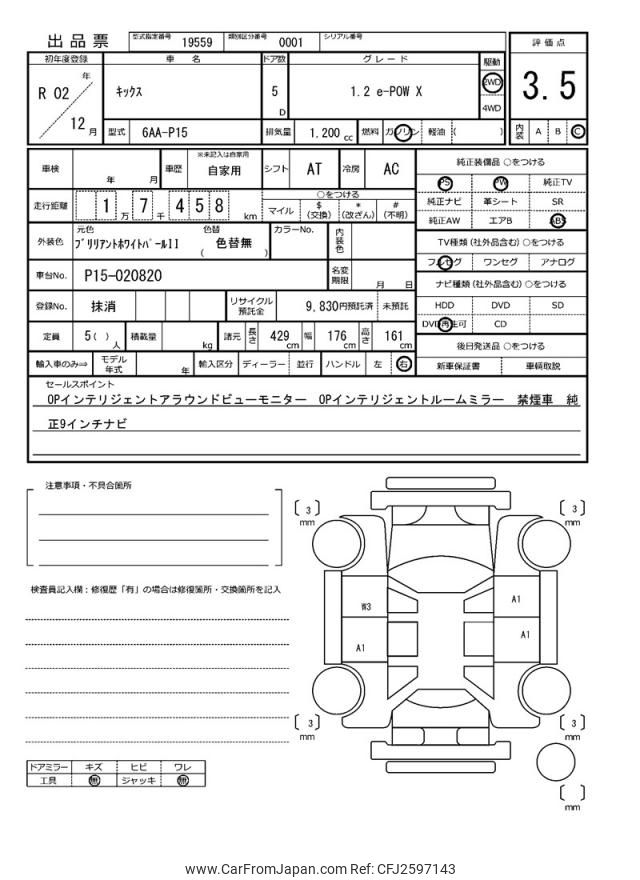 出品票 型式指定番号 19559 類別区分番号 0001 シリアル番号
初年度登録 車名 ドア数 グレード 駆動 評価点
R 02 年 12 月 キックス 5 D 1.2 e-POW X 2WD 4WD 3.5
型式 6AA-P15 排気量 1.200 cc 燃料 ガソリン 軽油 ( ) 内装 A B C
車検 年 月 車歴 ※未記入は自家用 自家用 シフト AT 冷房 AC 純正装備品 ○をつける
PS PW 純正TV
走行距離 1 万 7 千 4 5 8 km ○をつける マイル $ (交換) * (改ざん) # (不明) 純正ナビ 革シート SR
純正AW エアB ABS
外装色 元色 ブリリアントホワイトパールII 色替 ( 色替無 ) カラーNo. 内装色 TV種類 (社外品含む) ○をつける
フルセグ ワンセグ アナログ
車台No. P15-020820 名変期限 月 日 ナビ種類 (社外品含む) ○をつける
登録No. 抹消 リサイクル預託金 9,830円預託済 未預託 HDD DVD SD
DVD再生可 CD
定員 5 ( ) 人 積載量 kg 諸元 長さ 429 cm 幅 176 cm 高さ 161 cm 後日発送品 ○をつける
輸入車のみ⇒ モデル年式 年 輸入区分 ディーラー 並行 ハンドル 左 右 新車保証書 車輌取説
セールスポイント
OPインテリジェントアラウンドビューモニター OPインテリジェントルームミラー 禁煙車 純
正9インチナビ
注意事項・不具合箇所
検査員記入欄：修復歴「有」の場合は修復箇所・交換箇所を記入
[ 3 ] mm [ 3 ] mm
W3 A1
A1 A1
[ 3 ] mm [ 3 ] mm
[ ] mm
ドアミラー キズ ヒビ ワレ
工具 無 ジャッキ 無
www.CarFromJapan.com Ref: CFJ2597143